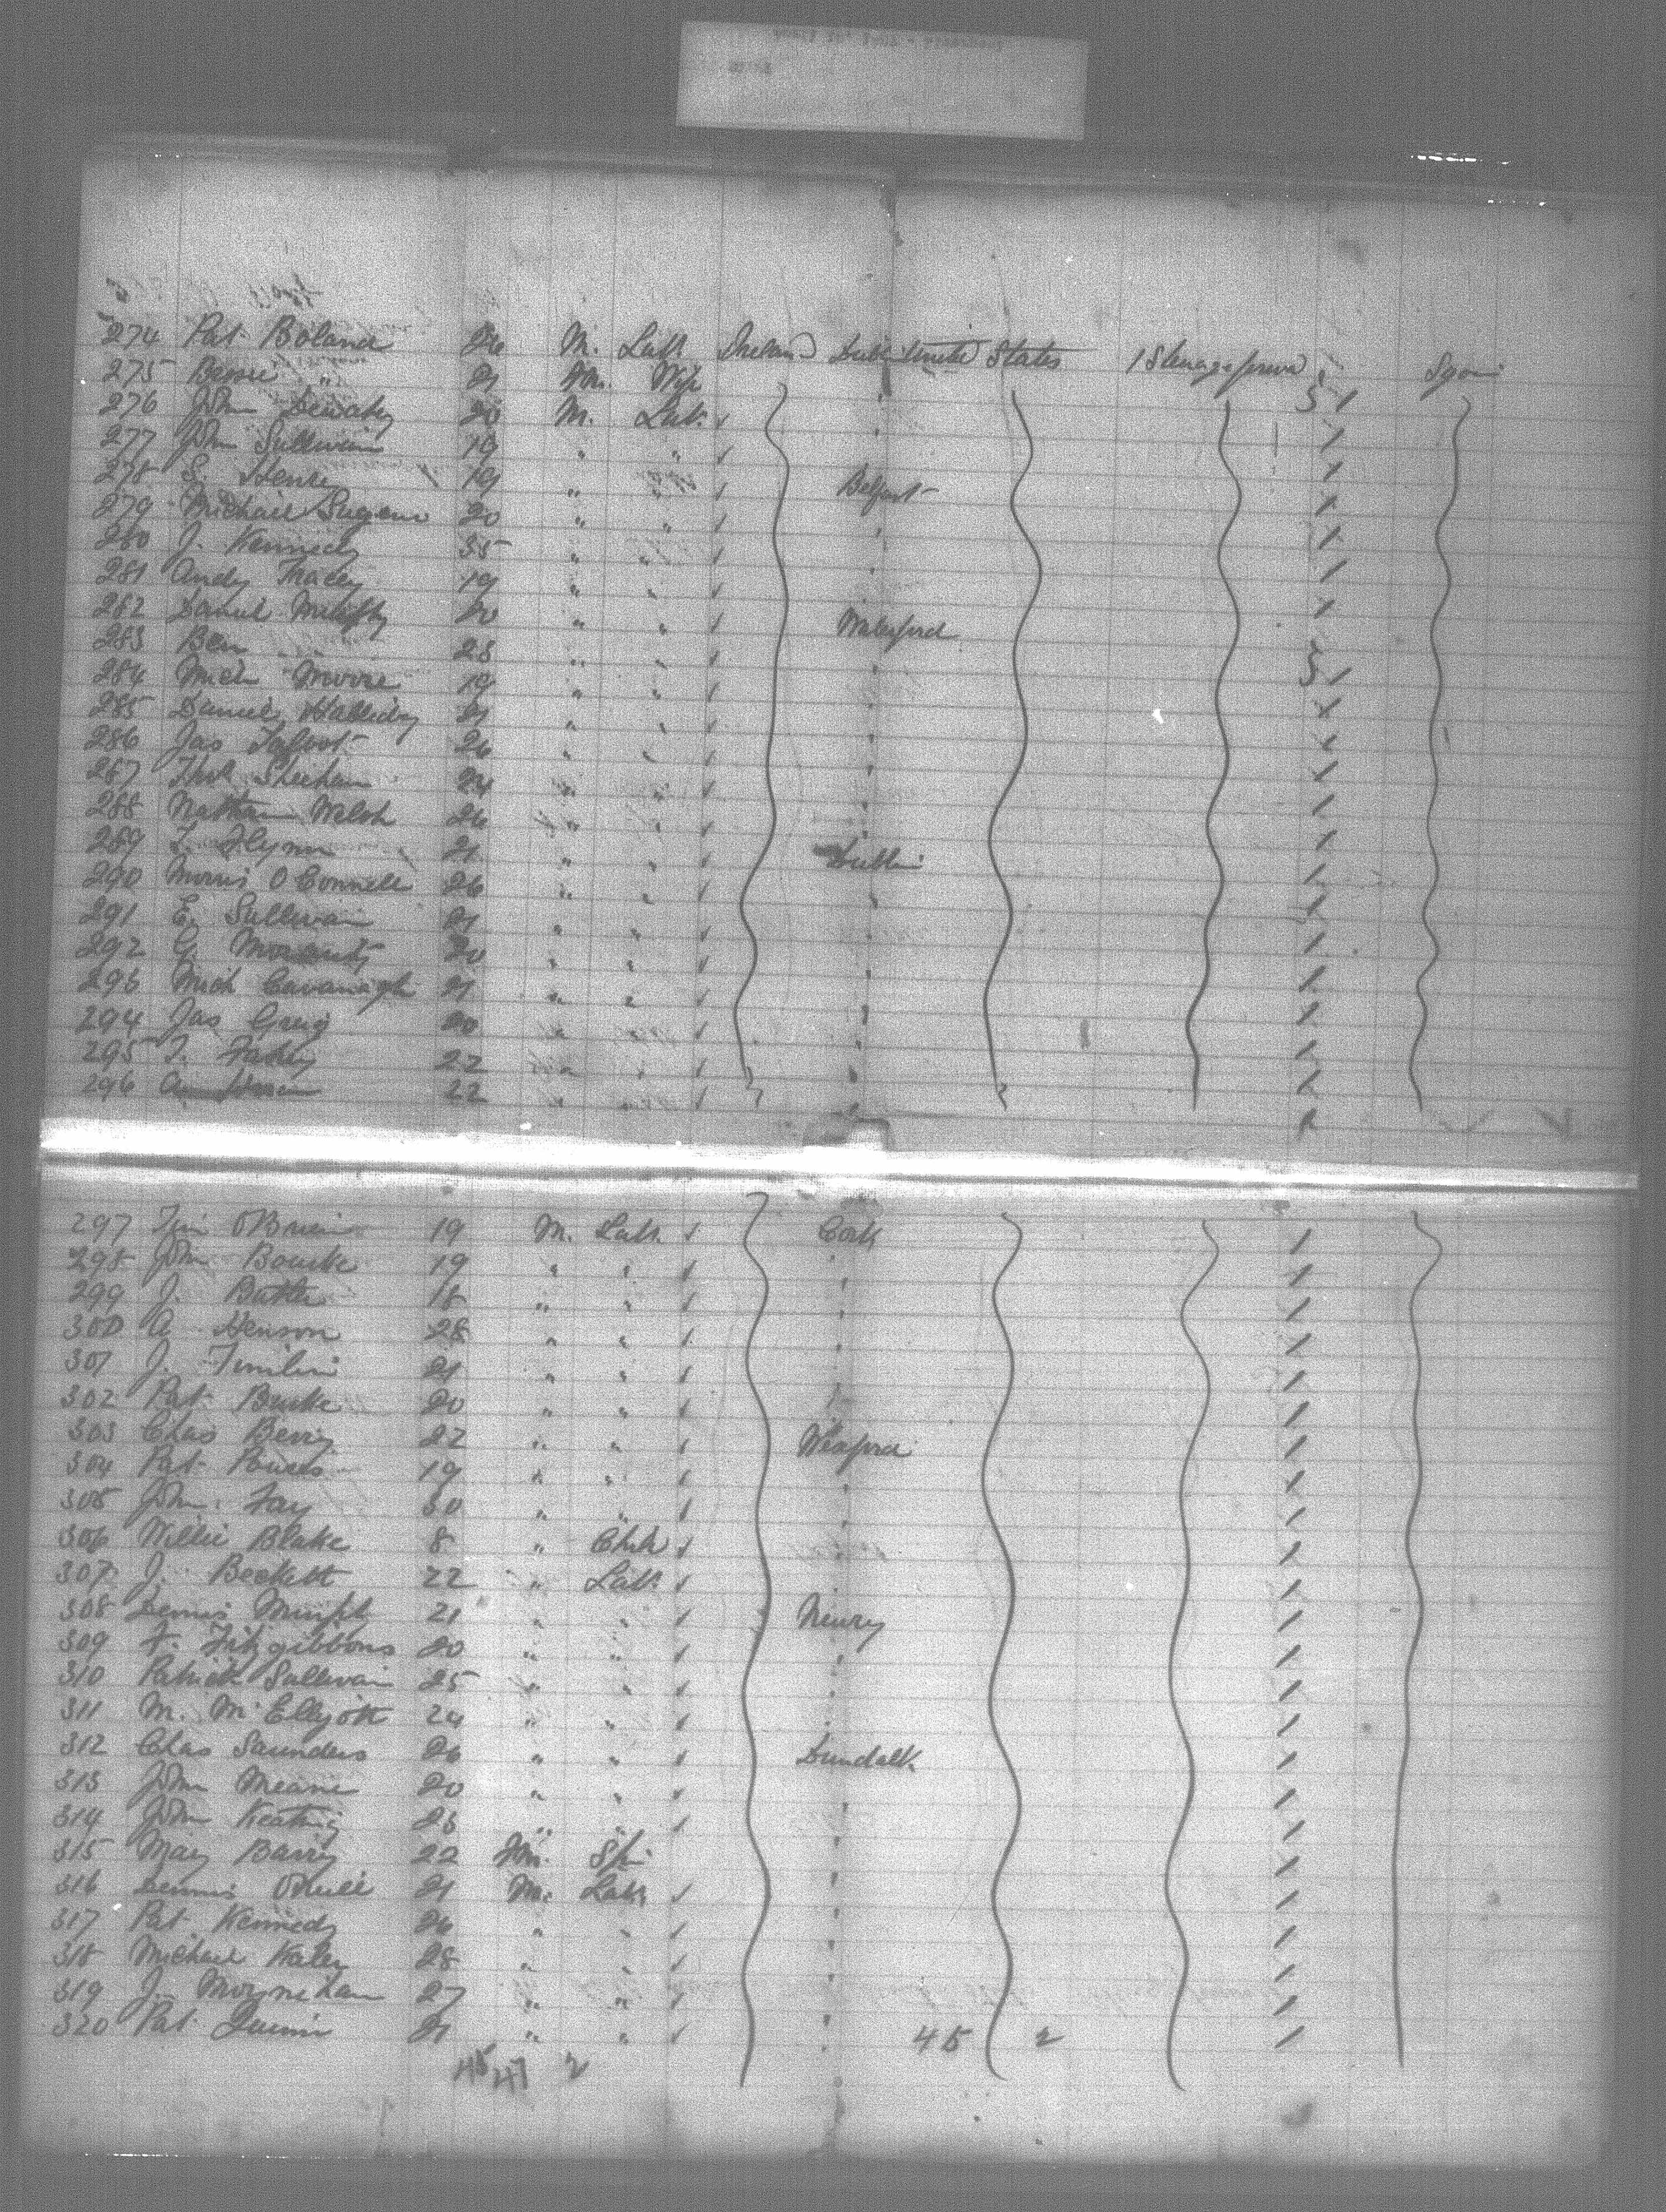 274 Pat Boland 26 M. Labr Ireland Dublin United States 1 Steerage forward
275 Bessie " 21 Fm. Wife
276 John 20 M. Labr.
277 John Sullivan 19 " "
278 S. Henry 19 " " Belfast
279 Michael 20 " "
280 J. Kennedy 35 " "
281 Andy Tracey 19 " "
282 Daniel Murphy 20 " " Waterford
283 Ben 23 " "
284 Mich Moore 19 " "
285 Daniel Halliday 21 " "
286 Jas 26 " "
287 Thos Sheehan 24 " "
288 Nathan Welsh 26 " "
289 T. Flynn 21 " " Dublin
290 Morris O'Connell 26 " "
291 E. Sullivan 21 " "
292 G. 20 " "
293 Mich Cavanagh 21 " "
294 Jas Greig 20 " "
295 T. Fahey 22 " "
296 22 " "
297 Tim O'Brien 19 M. Labr. Cork
298 John Bourke 19 " "
299 J. Butler 18 " "
300 A Henson 28 " "
301 J. Timlin 21 " "
302 Pat Burke 20 " "
303 Chas Berry 22 " " Wexford
304 Pat Powers 19 " "
305 John Fay 30 " "
306 Willie Blake 8 " Child
307 J. Beckett 22 " Labr.
308 Dennis Murphy 21 " " Newry
309 F. Fitzgibbons 20 " "
310 Patrick Sullivan 25 " "
311 M. McEllyott 24 " "
312 Chas Saunders 26 " " Dundalk
313 John Meane 20 " "
314 John Keating 23 " "
315 Mary Barry 22 Fm. Spr
316 Dennis O'Neill 21 M. Labr.
317 Pat Kennedy 26 " "
318 Michael Kaley 28 " "
319 J. Moynihan 27 " "
320 Pat Quinn 21 " " 45 2
45 47 2